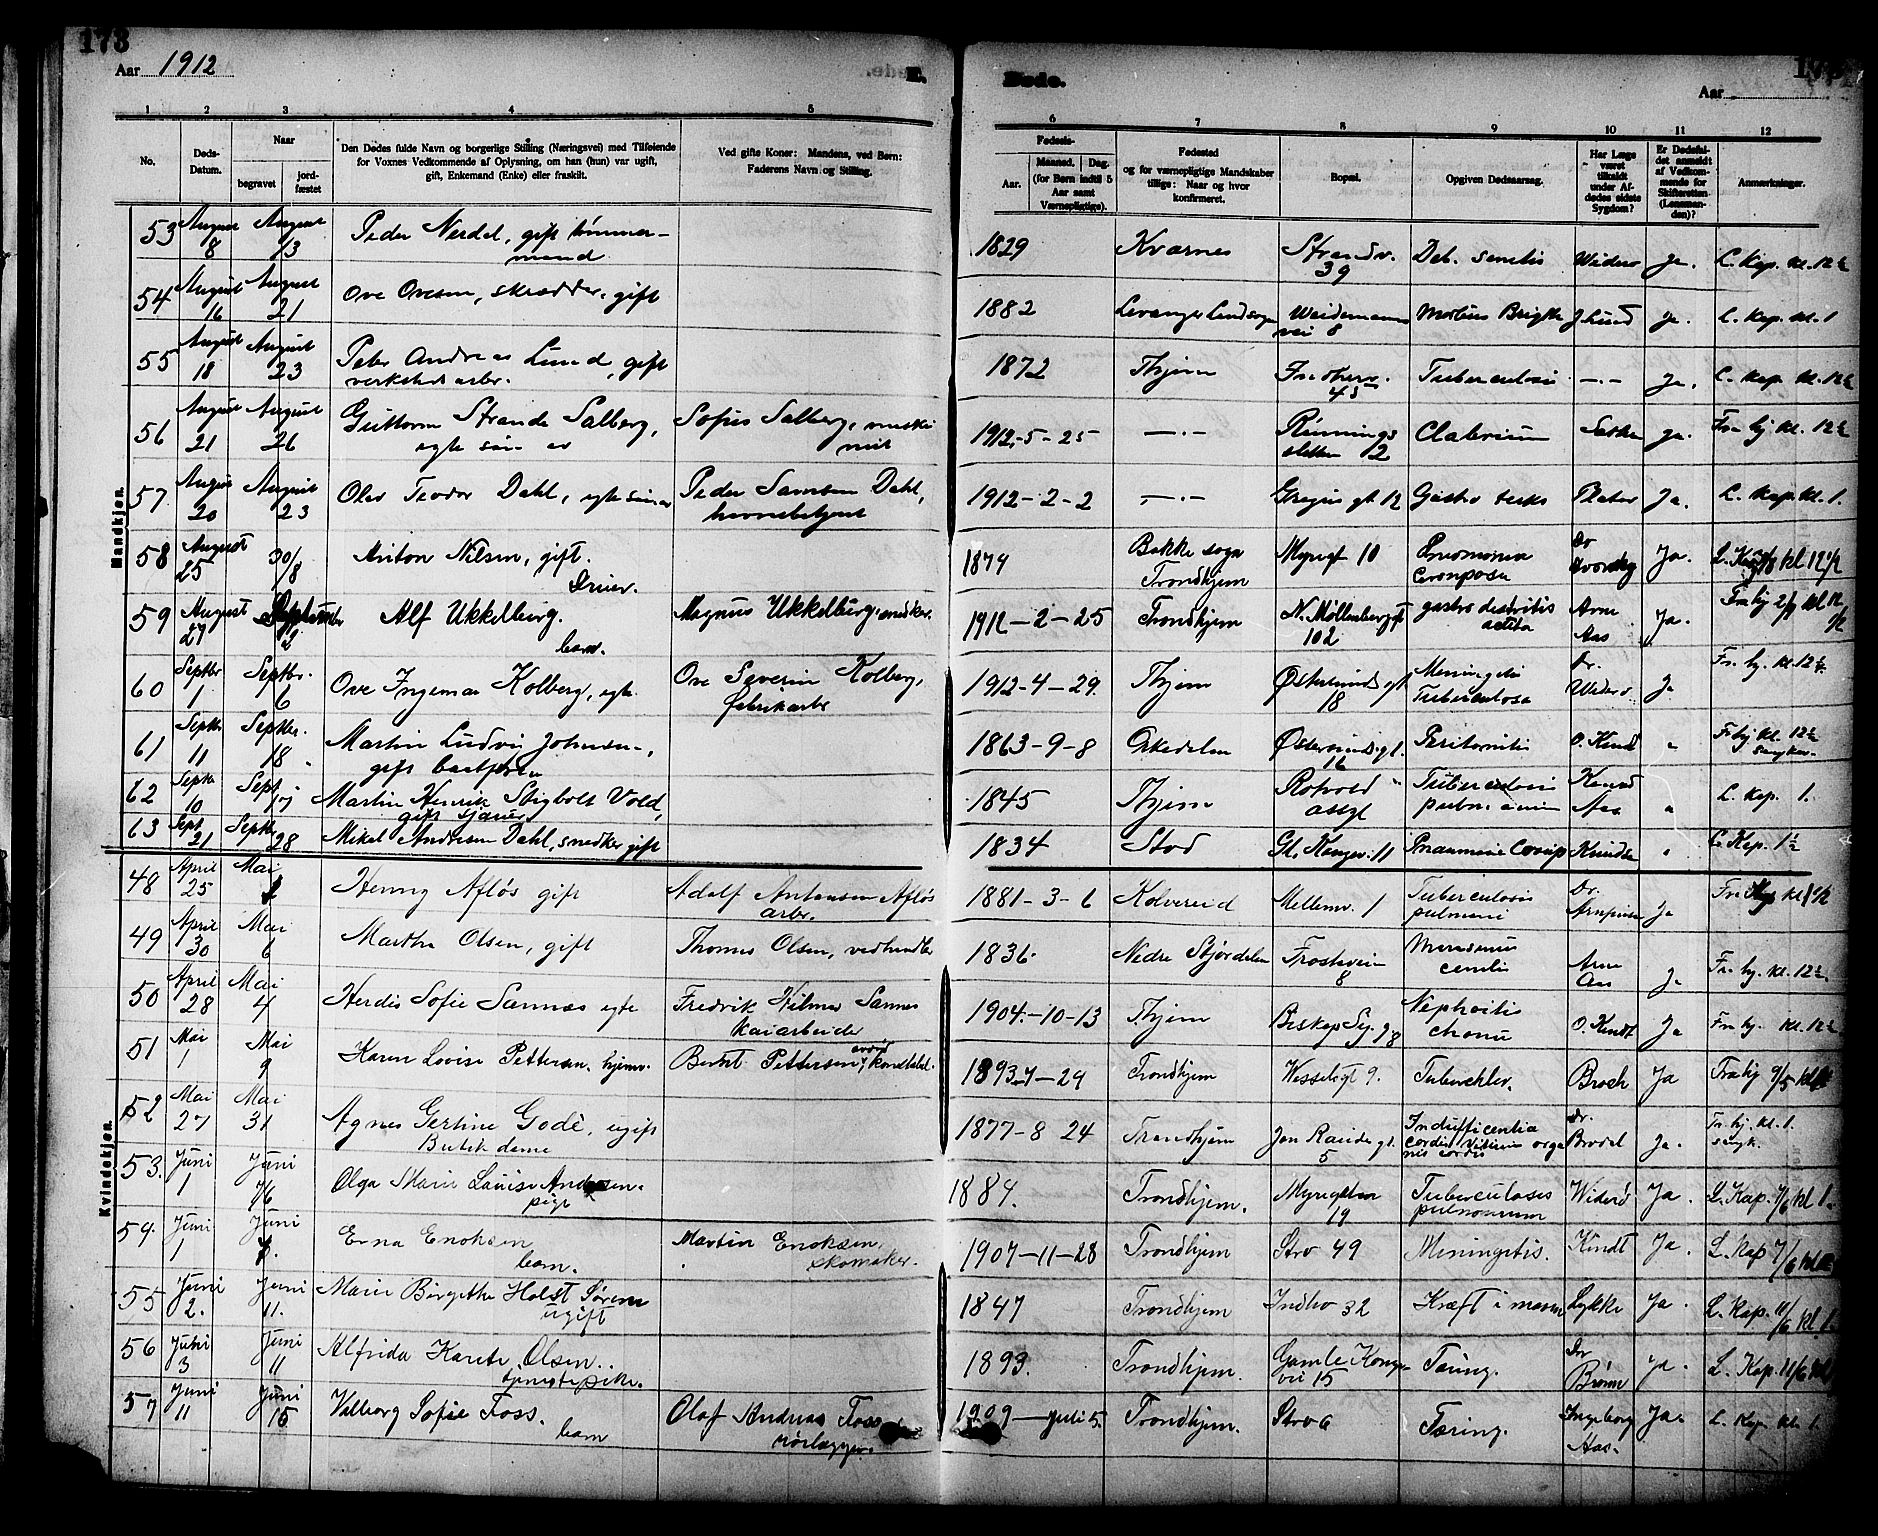 173
Aar 1912
E.
Døde.
Aar
1 2 3 4 5
No.
Døds-Datum.
Naar
begravet
jord-fæstet
Den Dødes fulde Navn og borgerlige Stilling (Næringsvei) med Tilføiende
for Voxnes Vedkommende af Oplysning, om han (hun) var ugift,
gift, Enkemand (Enke) eller fraskilt.
Ved gifte Koner: Mandens, ved Børn:
Faderens Navn og Stilling.
6 7 8 9 10 11 12
Fødsels-
Aar.
Maaned. Dag.
(for Børn indtil 5
Aar samt
Værnepligtige).
Fødested
og for værnepligtige Mandskaber
tillige: Naar og hvor
konfirmeret.
Bopæl.
Opgiven Dødsaarsag.
Har Læge
været
tilkaldt
under Af-
dødes sidste
Sygdom?
Er Dødsfal-
det anmeldt
af Vedkom-
mende for
Skifteretten
(Lensman-
den)?
Anmærkninger.
Mandkjøn.
53 August 8 August 13 Peder Nerdal, gift tømmer-
mand 1829 Kværnes Strandv. 39 Deb. senilis Widerø Ja. L. Kap. kl. 12½
54 August 16 August 21 Ove Ovesen, skrædder, gift 1882 Levanger Landsogn Weidemanns vei 8 Morbus Brigthi J Lund Ja. L. Kap. kl. 1
55 August 18 August 23 Peter Andreas Lund, gift
verkstedsarbr. 1872 Thjem 45 Tuberculosis —·— Ja. L. Kap. kl. 12½
56 August 21 August 26 Guttorm Strande Salberg,
egte søn av Sofus Salberg, 1912-5-25 —·— Rønnings sletten 12 Ja. Fra hj kl. 12½
57 August 20 August 23 Olav Teodor Dahl, egte søn av Peder Samsen Dahl,
havnebetjent 1912-2-2 —·— Gregus gt. 12 Gastro Ja. L. Kap. kl. 1.
58 August 25 30/8 Anton Nilsen, gift. 1874 Bakke sogn
Trondhjem Myrgt 10 Pneumonia
Dr Ja. L. Kap kl 12½
59 August 27 September 2 Alf Ukkelberg.
barn. Magnus Ukkelberg, snedker. 1912-2-25 Trondhjem N. Møllenberggt 102 gastro Arne Aas Ja. Fra hj 2/9 kl 12½
60 Septbr 1 Septbr. 6 Ove Ingemar Kolberg, egte Ove Severin Kolberg,
fabrikarbr 1912-4-29. Thjem Østersunds gt 18 Meningitis
Tuberculosa Dr. Widerø Ja Fr. hj. kl. 12½
61 Septbr 11 Septbr. 18 Martin Ludvig Johnsen,
gift 1863-9-8 Orkedalen Østersunds gt. 16 Peritonitis O. Kindt " Fr hj kl. 12½
62 Septbr 10 Sept 17 Martin Henrik Stigbolt Vold,
gift sjauer 1845 Thjem Rotvold asyl Tuberculosis
Aas " L. Kap. 1.
63 Sept 21 Septbr 28 Mikal Andreas Dahl, snedker gift 1834 Stod Gl. Kongev. 11 Pneumonie Croup Knudsen " L. Kap. 1½
Kvindekjøn.
48 April 25 Mai Henny Afløs gift Adolf Antonsen Afløs
arbr. 1881-3-6 Kolvereid Mellemv. 1 Tuberculosis
pulmonum Dr. Ja
49 April 30 Mai 6 Martha Olsen, gift Thomas Olsen, vedhandler 1836 Nedre Stjørdalen Frostaveien 8 Marasmus
senilis Arne Aas Ja Fr. hj. kl. 12½
50 April 28 Mai 4 Herdis Sofie Sannæs egte Fredrik Hilmar Sannes
Kaiarbeider 1904-10-13 Thjem Nephritis
chron. O. Kindt Ja Fra hj. kl. 12½
51 Mai 1 Mai 9 Karen Lovise Pettersen, hjemv. Berntt Pettersen, konstabel. 1893-7-29 Trondhjem Wesselsgt 9. Tuberchler. Broch Ja Fra hj 9/5
52 Mai 27 Mai 31 Agnes Gertine Godè, ugift
Butikdame 1877-8 24 Trondhjem Jon Raudes gt. 5 Insufficentia
cordis Vitium orga
nis cordis Dr. Ja. Fr. hj. kl. 1.
53. Juni 1 7/6 Olga Marie Louise Andersen.
pige 1884. Trondhjem. Myrgaten 19 Tuberculoses
pulmonum Widerø Ja. L. Kap. 7/6 kl 1.
54. Juni 1 Juni 7. Erna Enoksen
barn. Martin Enoksen,
skomaker. 1907-11-28 Trondhjem Stro 49 Miningitis. Kindt Ja. L. Kap 7/6
55 Juni 2. Juni 11. Marie Birgithe Holst Sørem
ugift 1847 Trondhjem Indho 32 Kræft i maven Lykke Ja. L. Kap. 11/6 kl. 1
56 Juni 3 Juni 11 Alfrida Karete Olsen.
tjenestepike. 1893. Trondhjem. Gamle Konge-
vei 15 Tæring. Dr Ja. L. Kap. 11/6
57 Juni 11 Juni 15 Valborg Sofie Foss.
barn Olaf Andreas Foss
rørlægger. 1909 — juli 5. Trondhjem. Stro 6 Tæring. Ingeborg Aas. Ja. L. Kap kl 1.